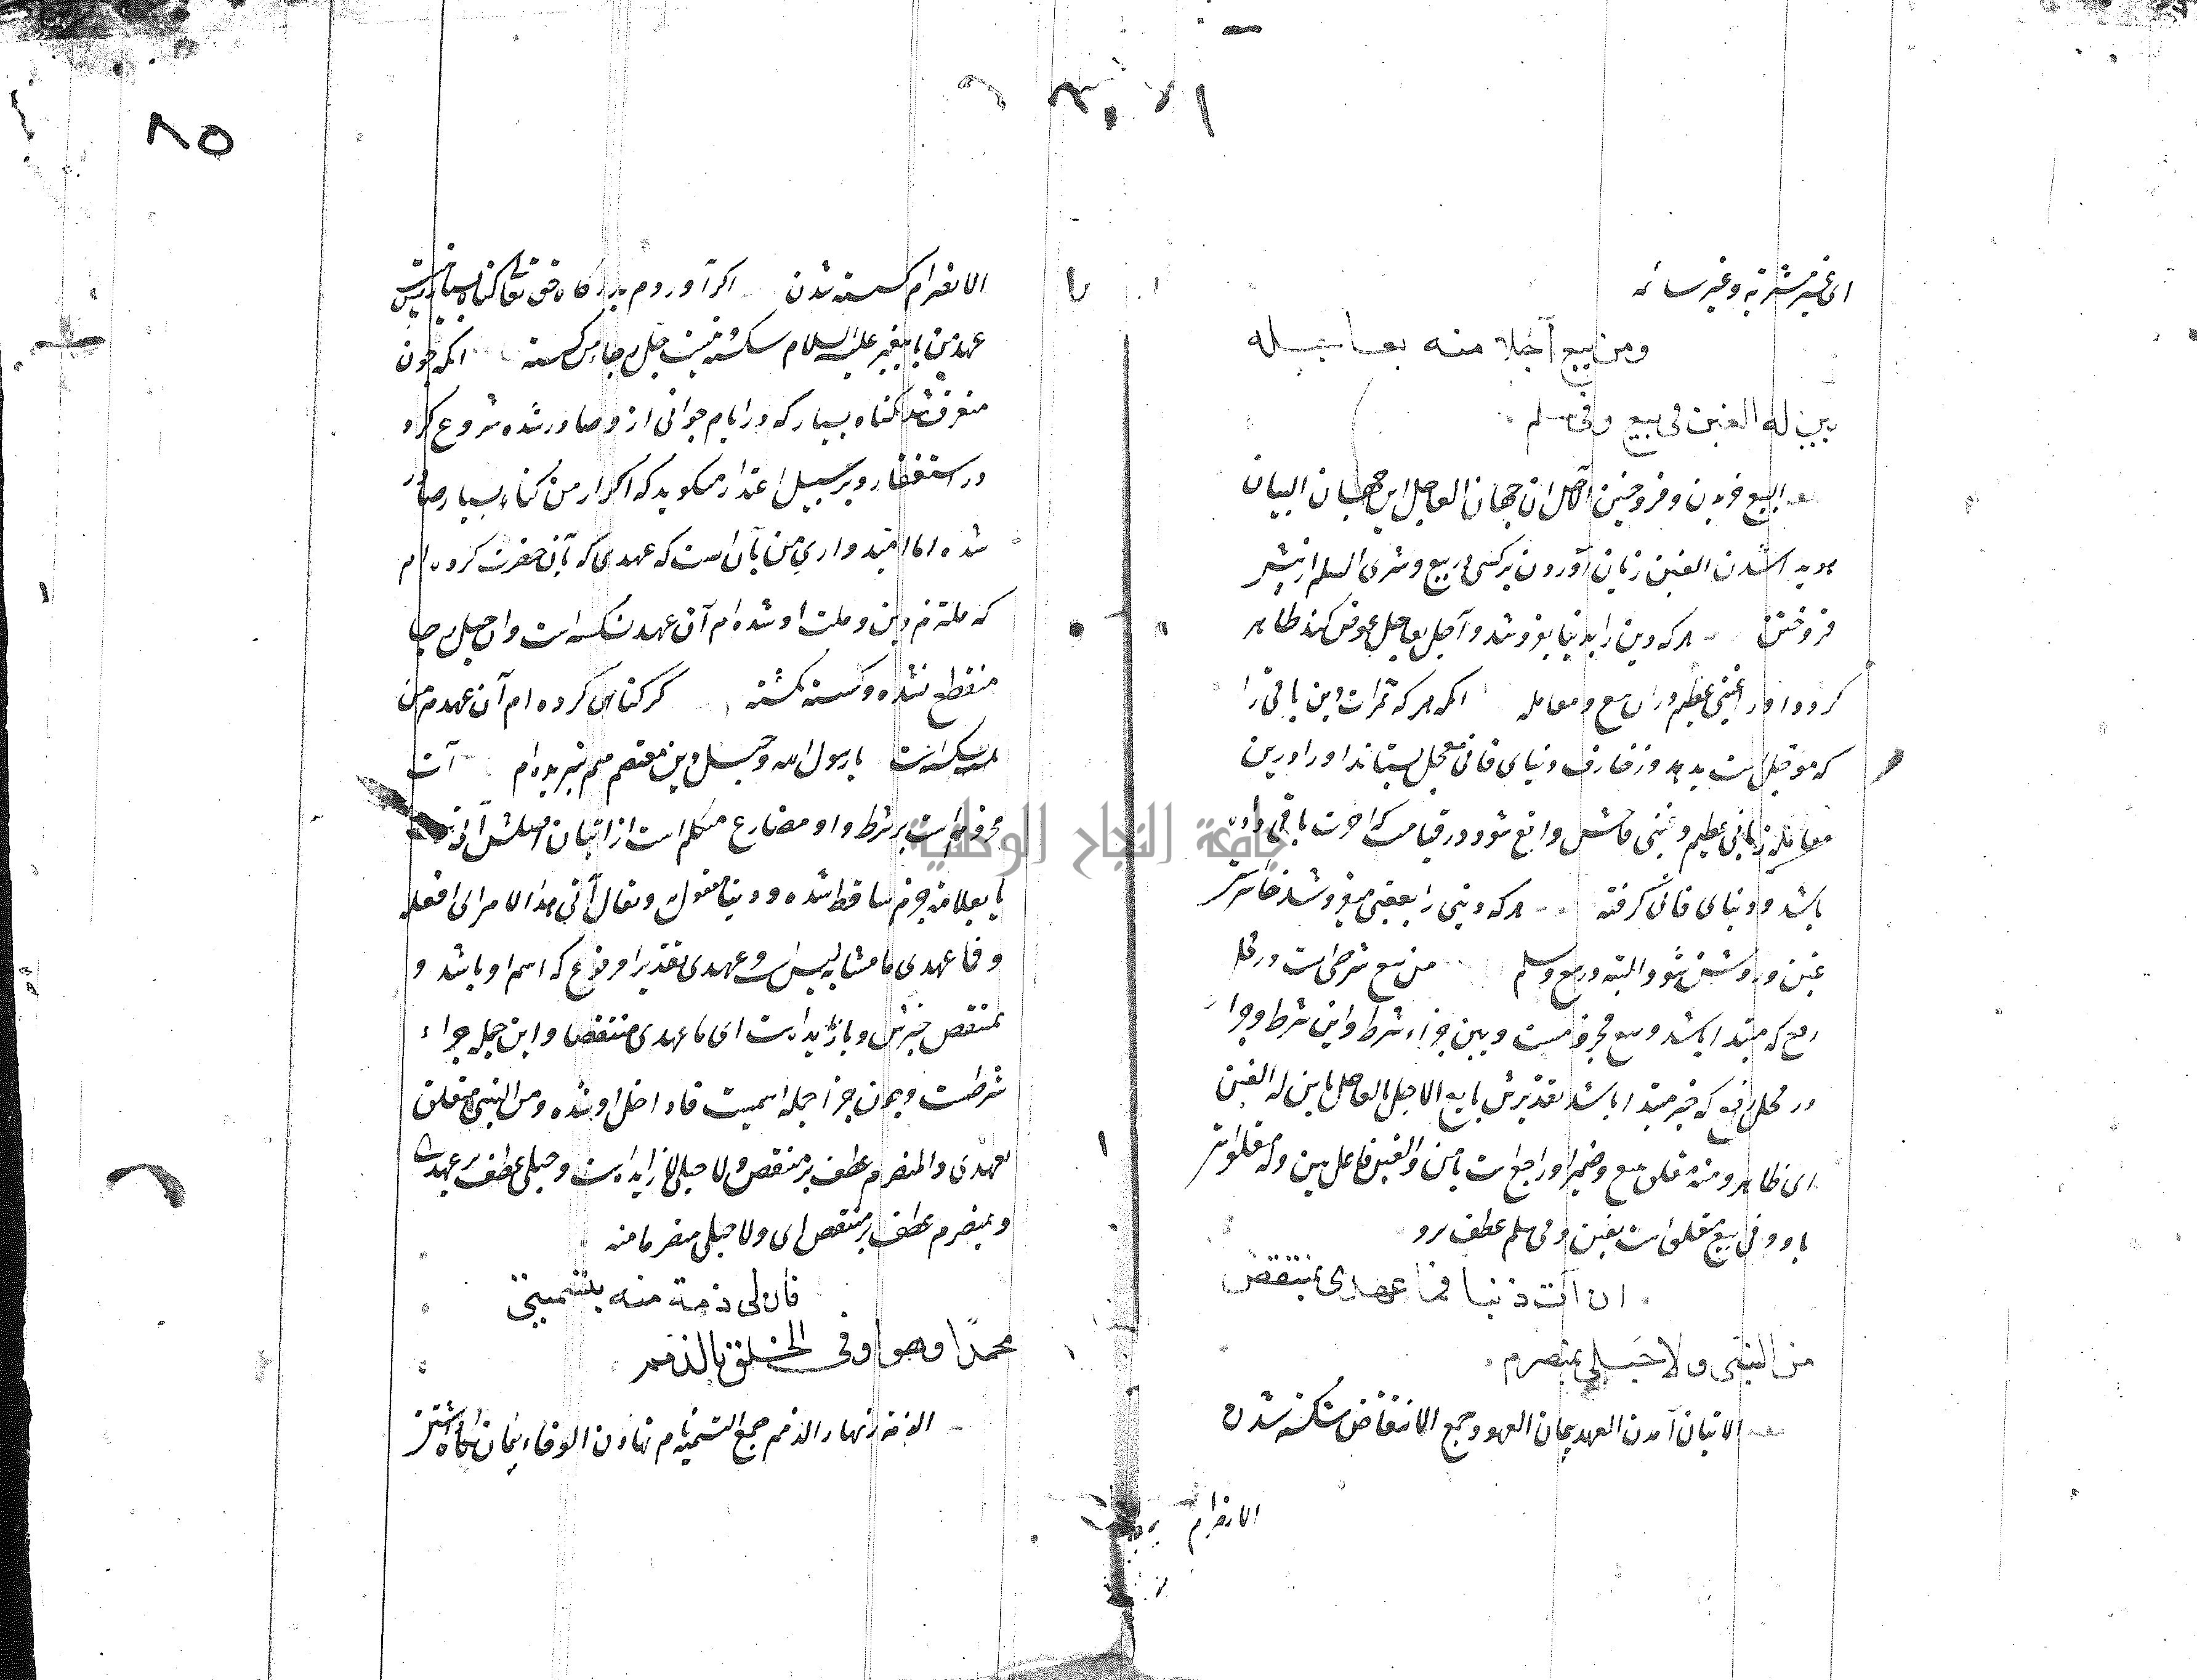 ای غیر مشتریة و غیر سائمه
ومن يبع آجلا منه بعاجله
يبن له الغبن في بيع وفي سلم
البیع خریدن و فروختن الآجل ان جهان العاجل این جهان البیان
هویدا شدن الغبن زیان آوردن بر کسی در بیع و شری السلم از پیش
فروختن هر که دین را بدنیا بفروشد و آجل بعاجل عوض کند ظاهر
کردد اورا غبنی عظیم در آن بیع و معامله انکه هر که ثمرات دین باقی را
که مؤجل است بدهد و زخارف دنیای فانی معجل بستاند او را درین
معامله زیانی عظیم و غبنی فاحش واقع شود در قیامت که اخرت باقی داده
باشد و دنیای فانی کرفته هر که دینی را بعقبی میفروشد خاسر
غبن در روشن شود البته در بیع و سلم من یبع شرطی است در محل
رفع که مبتدا باشد و یبع مجزومست و یبن جزاء شرط و این شرط و جزا
در محل رفع که خبر مبتدا باشد تقدیرش بایع الاجل بالعاجل باین له الغبن
ای ظاهر و منه متعلق بیبع و ضمیر او راجع است بامن والغبن فاعل یبن وله متعلق است
باو و فی بیع متعلق است بغبن و فی سلم عطف برو
ان آت ذنبا فما عهدي بمنتقض
من النبي ولا حبلي بمنصرم
الاتیان آمدن العهد پیمان العهود جمع الانتقاض شکسته شدن
الانصرام
۸۵
الانصرام کسسته شدن اکر آوردم بدرکاه حق تعالی کناه بسیار نیست
عهد من با پیغمبر علیه السلام شکسته و نیست حبل رجا من کسسته انکه چون
معرف شد بکناه بسیار که در ایام جوانی از و صادر شده شروع کرد
در استغفار و بر سبیل اعتذار میکوید که اکر از من کناه بسیار صادر
شده اما امیدواری من بآن است که عهدی که بآن حضرت کرده ام
که ملتزم دین و ملت او شده ام آن عهد نشکسته است و ان حبل رجا
منقطع نشده و کسسته نکشته کر کناهی کرده ام آن عهد من
نشکسته است یا رسول الله و حبل دین معتصم هم نبریده ام آت
مجزوم است بشرط و او مضارع متکلم است از اتیان اصلش آتی
یا بعلامة جزم ساقط شده و ذنبا مفعول و یقال آتی هذا الامر ای افعله
و فما عهدی ما مشابه لیس است و عهدی تقدیرا مرفوع که اسم او باشد و
بمنتقض خبرش و با زایده است ای ما عهدی منتقضا و این جمله جزاء
شرطست و چون جزا جمله اسمیست فا در داخل او شده و من النبی متعلق
بعهدی و المنصرم عطف بر منتقض و لا حبلی لا زایده است و حبلی عطف بر عهدی
و بمنصرم عطف بر منتقض ای ولا حبلی منصرما منه
فان لي ذمة منه بتسميتي
محمدا وهو اوفى الخلق بالذمم
الذمة زنهار الذمم جمع التسمیة نام نهادن الوفاء پیمان نکاه داشتن
جامعة النجاح الوطنية